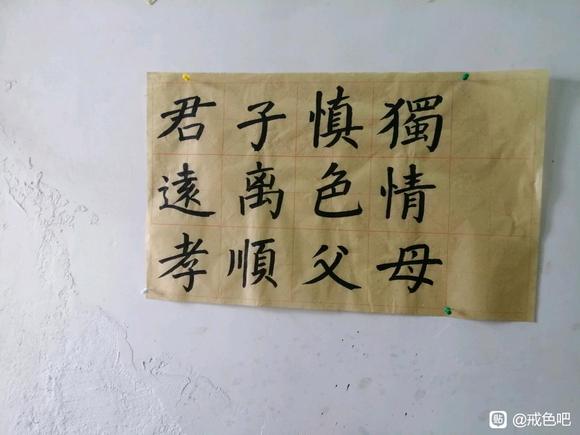 君子慎獨
遠离色情
孝順父母
貼 @戒色吧